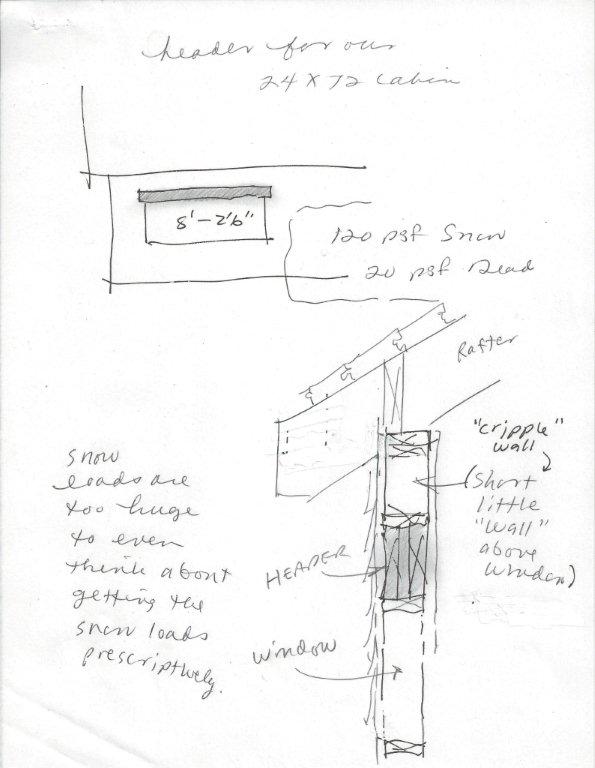 header for our
24 x 72 cabin
8'-2'6"
120 psf Snow
20 psf Dead
Rafter
"cripple"
wall
(Short
little
"wall"
above
window)
snow
loads are
too huge
to even
think about
getting the
snow loads
prescriptively.
HEADER
window